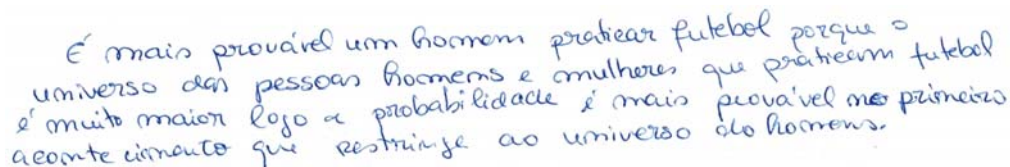 É mais provável um homem praticar futebol porque o
universo das pessoas homens e mulheres que praticam futebol
é muito maior logo a probabilidade é mais provável no primeiro
acontecimento que restringe ao universo do homens.